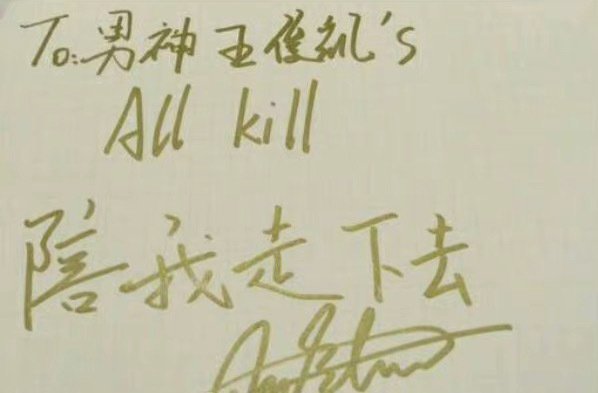 To:男神王俊凯's
All kill
陪我走下去